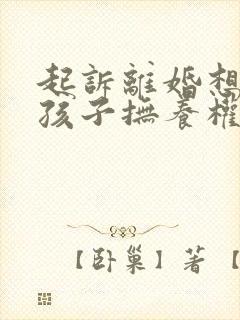 起訴離婚想
孩子撫養權
【卧巢】著【